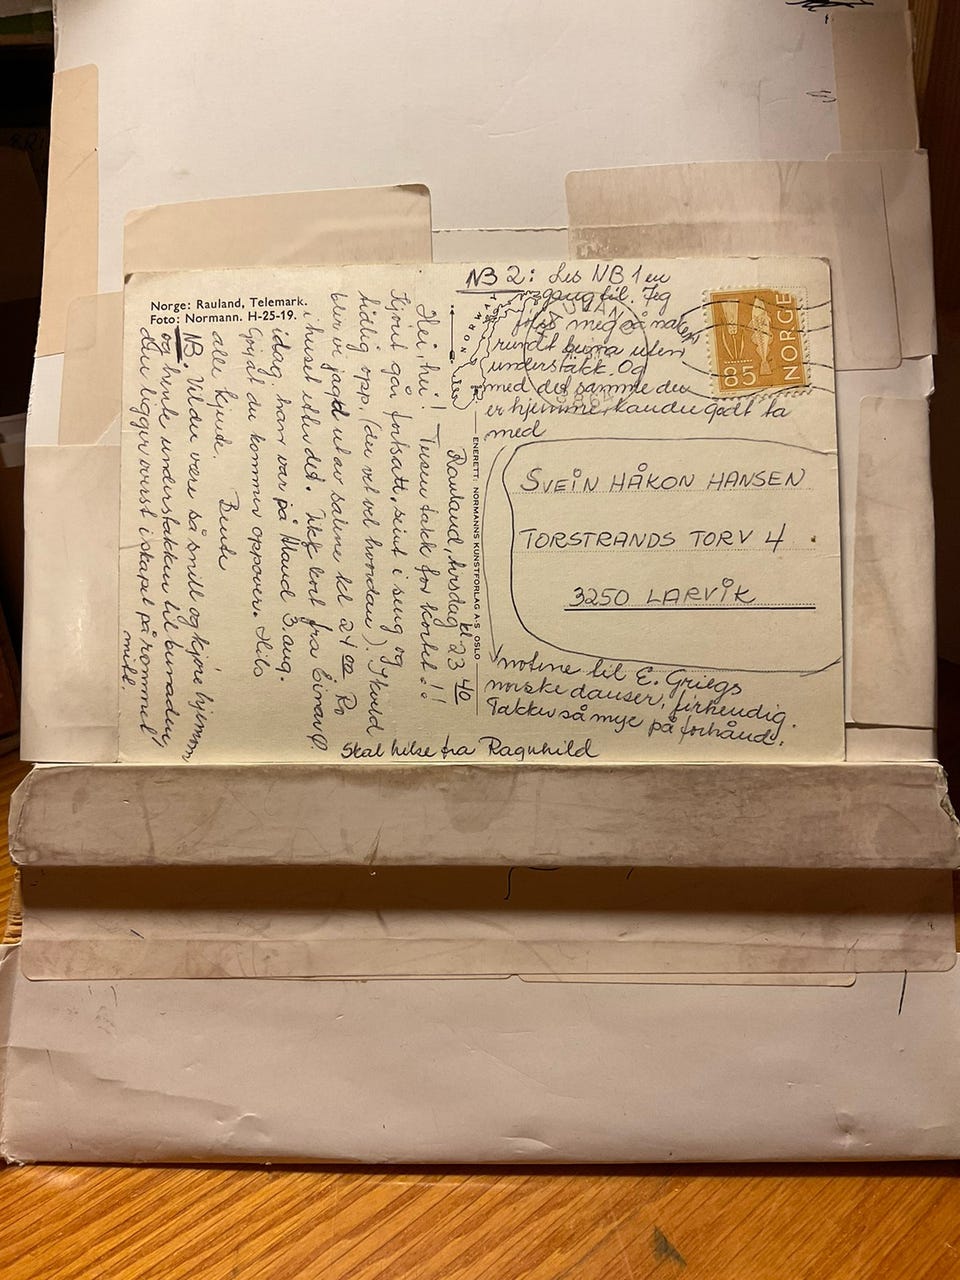 Norge: Rauland, Telemark.
Foto: Normann. H-25-19.
Rauland, tirsdag kl. 23 40
Hei, hei! Tusen takk for kortet!!
Kjøret går fortsatt, seint i seng og
tidlig opp. (du vet vel hvordan). I kveld
blir vi jagd ut av salene kl 21 00 Ro
i huset etter det. Fikk kort fra Einar Ø
idag, han var på Maud 3. aug.
Gøy at du kommer oppover. Hils
alle kjente.
Bente
NB. Vil du være så snill og kjøre hjemom
og hente understakken til bunaden,
den ligger øverst i skapet på rommet
mitt.
ENERETT: NORMANNS KUNSTFORLAG A-S OSLO
NORGE
NB 2: Les NB 1 en
gang til. Jeg
med på
rundt uten
understakk. Og
med det samme du
er hjemme, kan du godt ta
med
NORGE
85
SVEIN HÅKON HANSEN
TORSTRANDS TORV 4
3250 LARVIK
notene til E. Griegs
norske danser, firhendig.
Takker så mye på forhånd.
Skal hilse fra Ragnhild